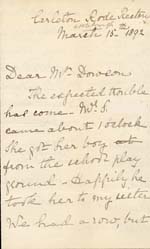 Carleton Rode Rectory
Attleborough
March 15th 1892
Dear Mr Dowson
The expected trouble
has come. Mr S.
came about 1 o'clock
She got her boy at
from the school play
ground - Happily he
took her to my sister
We had a row, but